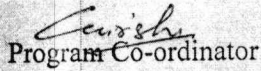 Program Co-ordinator